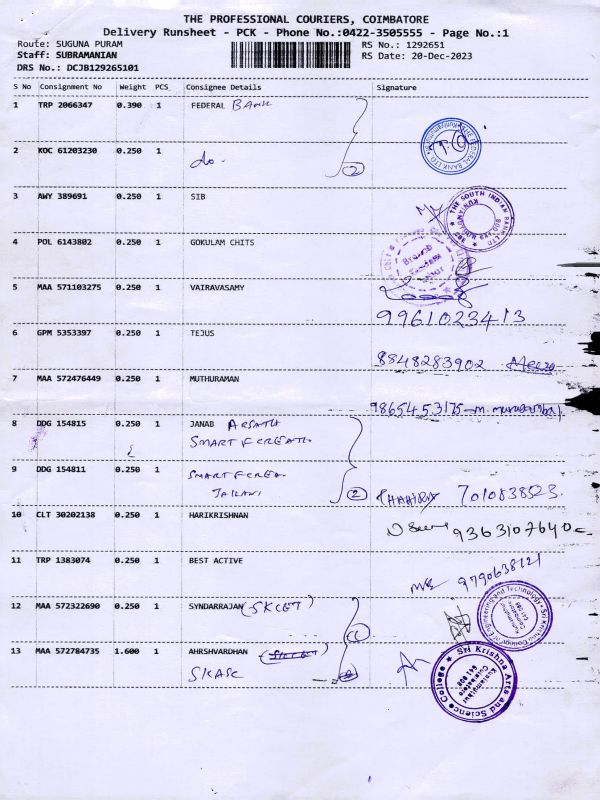 THE PROFESSIONAL COURIERS, COIMBATORE
Delivery Runsheet - PCK - Phone No.:0422-3505555 - Page No.:1
Route: SUGUNA PURAM RS No.: 1292651
Staff: SUBRAMANIAN RS Date: 20-Dec-2023
DRS No.: DCJB129265101
S No Consignment No Weight PCS Consignee Details Signature
1 TRP 2066347 0.390 1 FEDERAL BANK
2 KOC 61203230 0.250 1 do.
2
3 AWY 389691 0.250 1 SIB
THE SOUTH INDIAN BANK LTD
4 POL 6143802 0.250 1 GOKULAM CHITS
5 MAA 571103275 0.250 1 VAIRAVASAMY
9961023413
6 GPM 5353397 0.250 1 TEJUS
8848283902
7 MAA 572476449 0.250 1 MUTHURAMAN
9865453175
8 DDG 154815 0.250 1 JANAB
SMART
9 DDG 154811 0.250 1 SMART
JAILANI 2 7010838523.
10 CLT 30202138 0.250 1 HARIKRISHNAN
9363107640
11 TRP 1383074 0.250 1 BEST ACTIVE
9790638121
12 MAA 572322690 0.250 1 SYNDARRAJAN (SKCET)
Sri Krishna College of Engineering and Technology
13 MAA 572784735 1.600 1 AHRSHVARDHAN
SKASC
Sri Krishna Arts and Science College
Kuniamuthur
Coimbatore
641 008